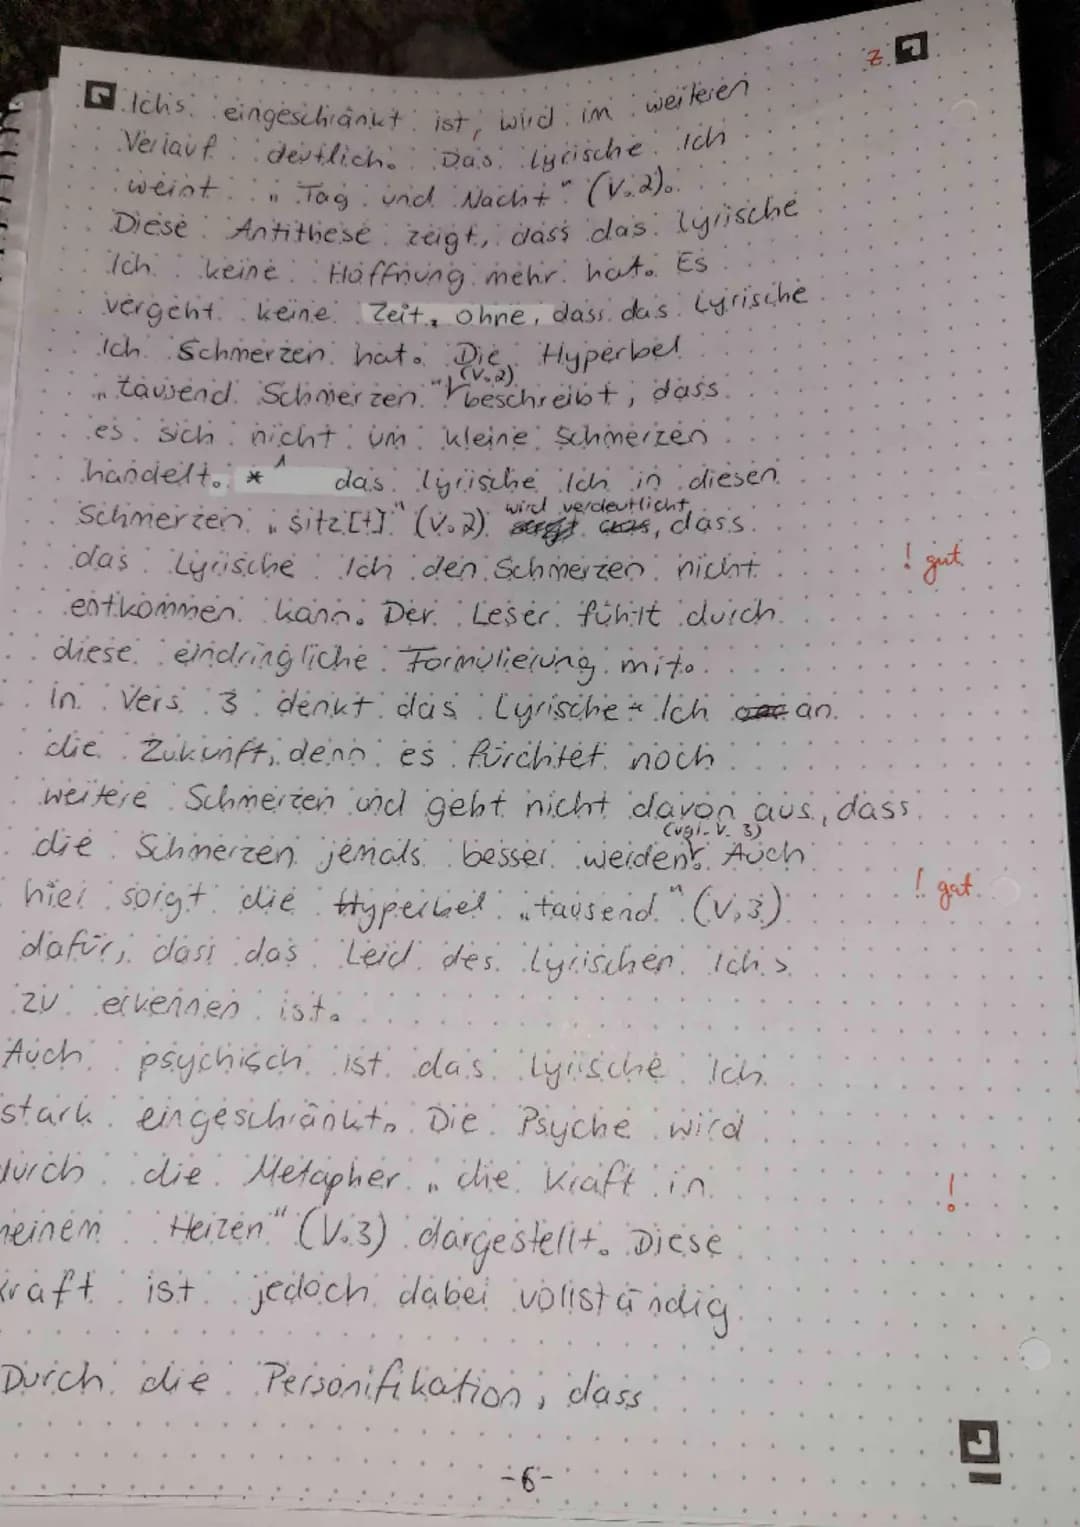 Z.
Ichs eingeschränkt ist, wird im weiteren
Verlauf deutlich. Das lyrische Ich
weint „Tag und Nacht" (V.2).
Diese Antithese zeigt, dass das lyrische
Ich keine Hoffnung mehr hat. Es
vergeht keine Zeit, ohne, dass das Lyrische
Ich Schmerzen hat. Die Hyperbel
(V.2)
„tausend Schmerzen" beschreibt, dass
es sich nicht um kleine Schmerzen
handelt. * das lyrische Ich in diesen
wird verdeutlicht
Schmerzen „sitz[t]" (V.2), dass
das Lyrische Ich den Schmerzen nicht
! gut
entkommen kann. Der Leser fühlt durch
diese eindringliche Formulierung mit.
In Vers 3 denkt das Lyrische Ich an
die Zukunft, denn es fürchtet noch
weitere Schmerzen und geht nicht davon aus, dass
(vgl. V. 3)
die Schmerzen jemals besser werden. Auch
hier sorgt die Hyperbel „tausend" (V.3)
! gut
dafür, dass das Leid des Lyrischen Ichs
zu erkennen ist.
Auch psychisch ist das lyrische Ich
stark eingeschränkt. Die Psyche wird
durch die Metapher „die Kraft in
!
meinem Herzen" (V.3) dargestellt. Diese
Kraft ist jedoch dabei vollständig
Durch die Personifikation, dass
-6-